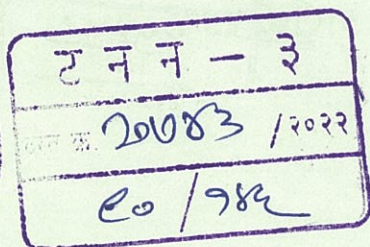 ट न न - ३
क्र. २०७४३ /२०२२
९० / १४५